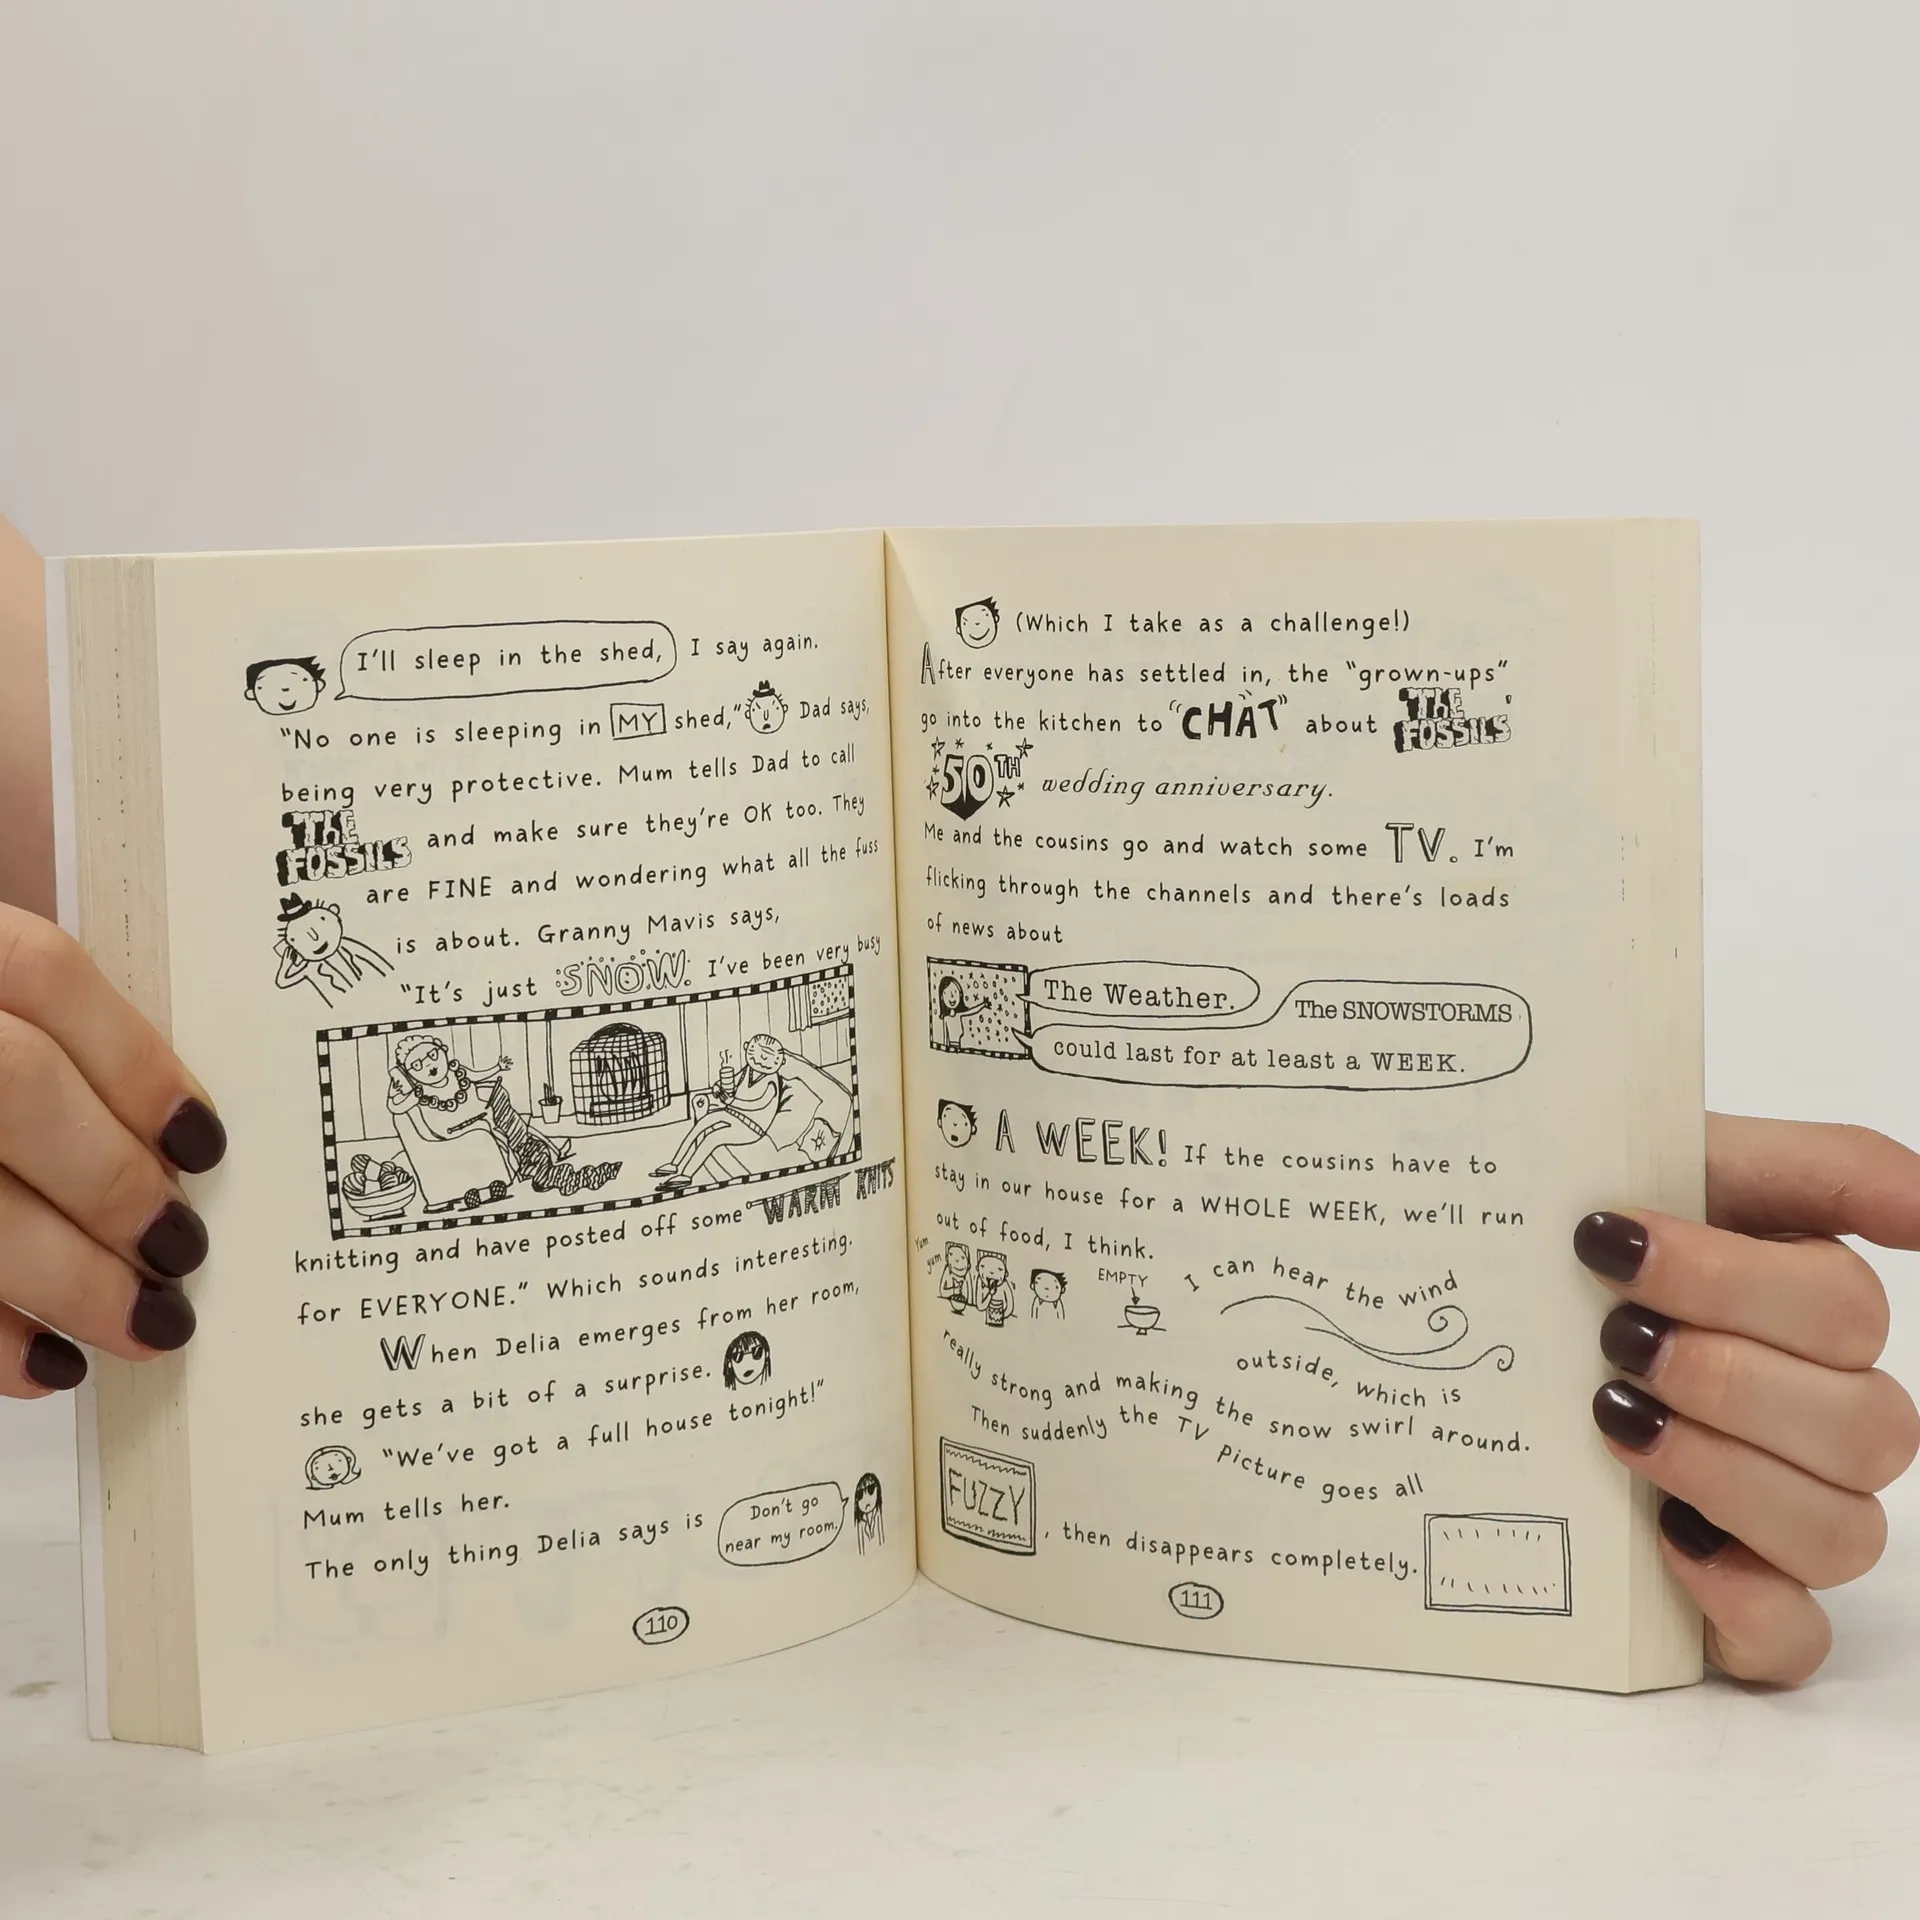 I'll sleep in the shed, I say again.
"No one is sleeping in MY shed," Dad says,
being very protective. Mum tells Dad to call
THE FOSSILS and make sure they're OK too. They
are FINE and wondering what all the fuss
is about. Granny Mavis says,
"It's just SNOW. I've been very busy
knitting and have posted off some WARM KNITS
for EVERYONE." Which sounds interesting.
When Delia emerges from her room,
she gets a bit of a surprise.
"We've got a full house tonight!"
Mum tells her.
The only thing Delia says is Don't go
near my room.
110
(Which I take as a challenge!)
After everyone has settled in, the "grown-ups"
go into the kitchen to "CHAT" about THE FOSSILS'
50TH wedding anniversary.
Me and the cousins go and watch some TV. I'm
flicking through the channels and there's loads
of news about
The Weather.
The SNOWSTORMS
could last for at least a WEEK.
A WEEK! If the cousins have to
stay in our house for a WHOLE WEEK, we'll run
out of food, I think.
Yum
yum
EMPTY
I can hear the wind
outside, which is
really strong and making the snow swirl around.
Then suddenly the TV picture goes all
FUZZY, then disappears completely.
111